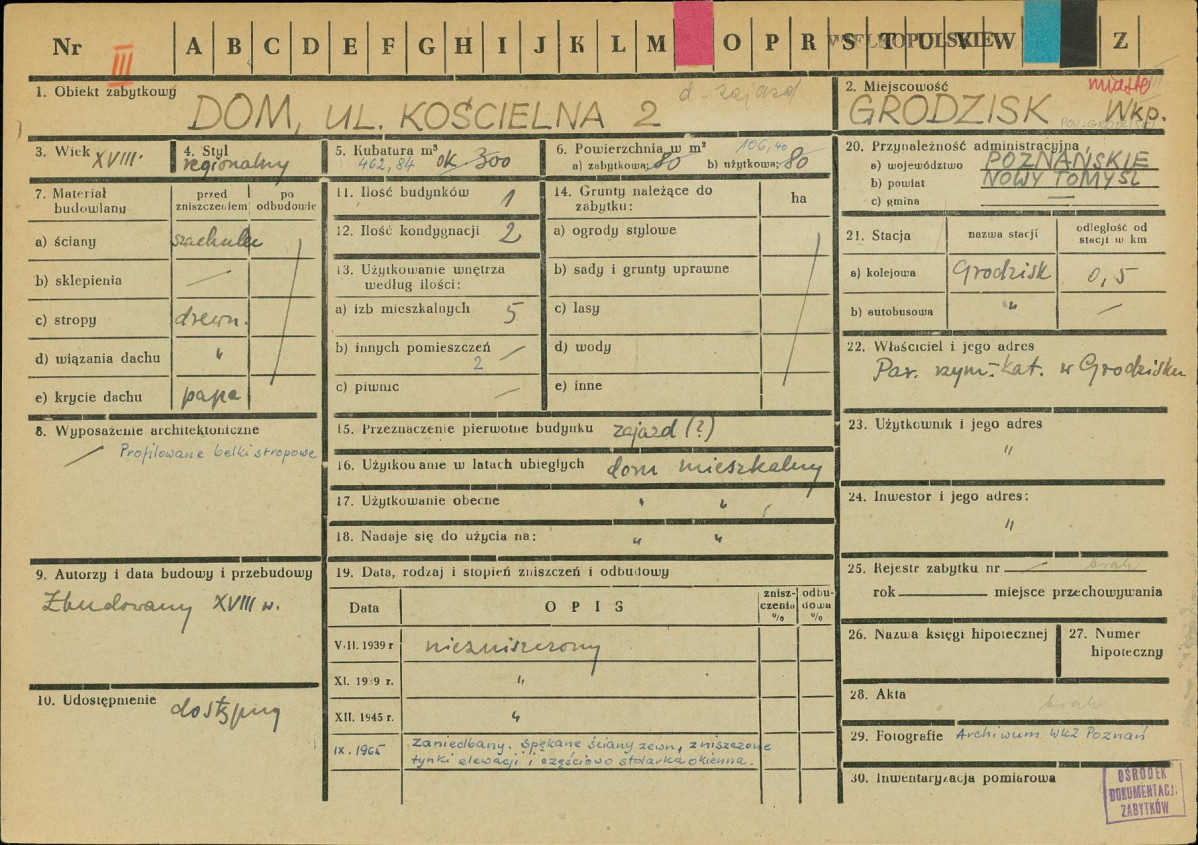 Nr III A B C D E F G H I J K L M O P R S T U V W Z
WIELKOPOLSKIE
1. Obiekt zabytkowy
DOM, UL. KOŚCIELNA 2
d. zajazd
2. Miejscowość
miasto
GRODZISK Wkp.
3. Wiek XVIII.
4. Styl
regionalny
5. Kubatura m³
462,84 ok 300
6. Powierzchnia w m²
a) zabytkowa: 80 b) użytkowa: 80
106,40
7. Materiał budowlany
przed zniszczeniem
po odbudowie
a) ściany szachulec
b) sklepienia —
c) stropy drewn.
d) wiązania dachu "
e) krycie dachu papa
8. Wyposażenie architektoniczne
— Profilowane belki stropowe
9. Autorzy i data budowy i przebudowy
Zbudowany XVIII w.
10. Udostępnienie
dostępny
11. Ilość budynków 1
12. Ilość kondygnacji 2
13. Użytkowanie wnętrza według ilości:
a) izb mieszkalnych 5
b) innych pomieszczeń —
2
c) piwnic —
14. Grunty należące do zabytku:
ha
a) ogrody stylowe
b) sady i grunty uprawne
c) lasy
d) wody
e) inne
15. Przeznaczenie pierwotne budynku zajazd (?)
16. Użytkowanie w latach ubiegłych dom mieszkalny
17. Użytkowanie obecne " "
18. Nadaje się do użycia na: " "
19. Data, rodzaj i stopień zniszczeń i odbudowy
Data
OPIS
zniszczenia %
odbudowa %
VIII. 1939 r niezniszczony
XI. 1939 r. "
XII. 1945 r. "
IX. 1965 Zaniedbany. Spękane ściany zewn, zniszczone
tynki elewacji i częściowo stolarka okienna.
20. Przynależność administracyjna
a) województwo POZNAŃSKIE
b) powiat NOWY TOMYŚL
c) gmina —
21. Stacja
nazwa stacji
odległość od stacji w km
a) kolejowa Grodzisk 0,5
b) autobusowa " —
22. Właściciel i jego adres
Par. rzym.-kat. w Grodzisku
23. Użytkownik i jego adres
"
24. Inwestor i jego adres:
"
25. Rejestr zabytku nr — brak
rok miejsce przechowywania
26. Nazwa księgi hipotecznej
27. Numer hipoteczny
28. Akta
brak
29. Fotografie Archiwum WKZ Poznań
30. Inwentaryzacja pomiarowa
OŚRODEK
DOKUMENTACJI
ZABYTKÓW